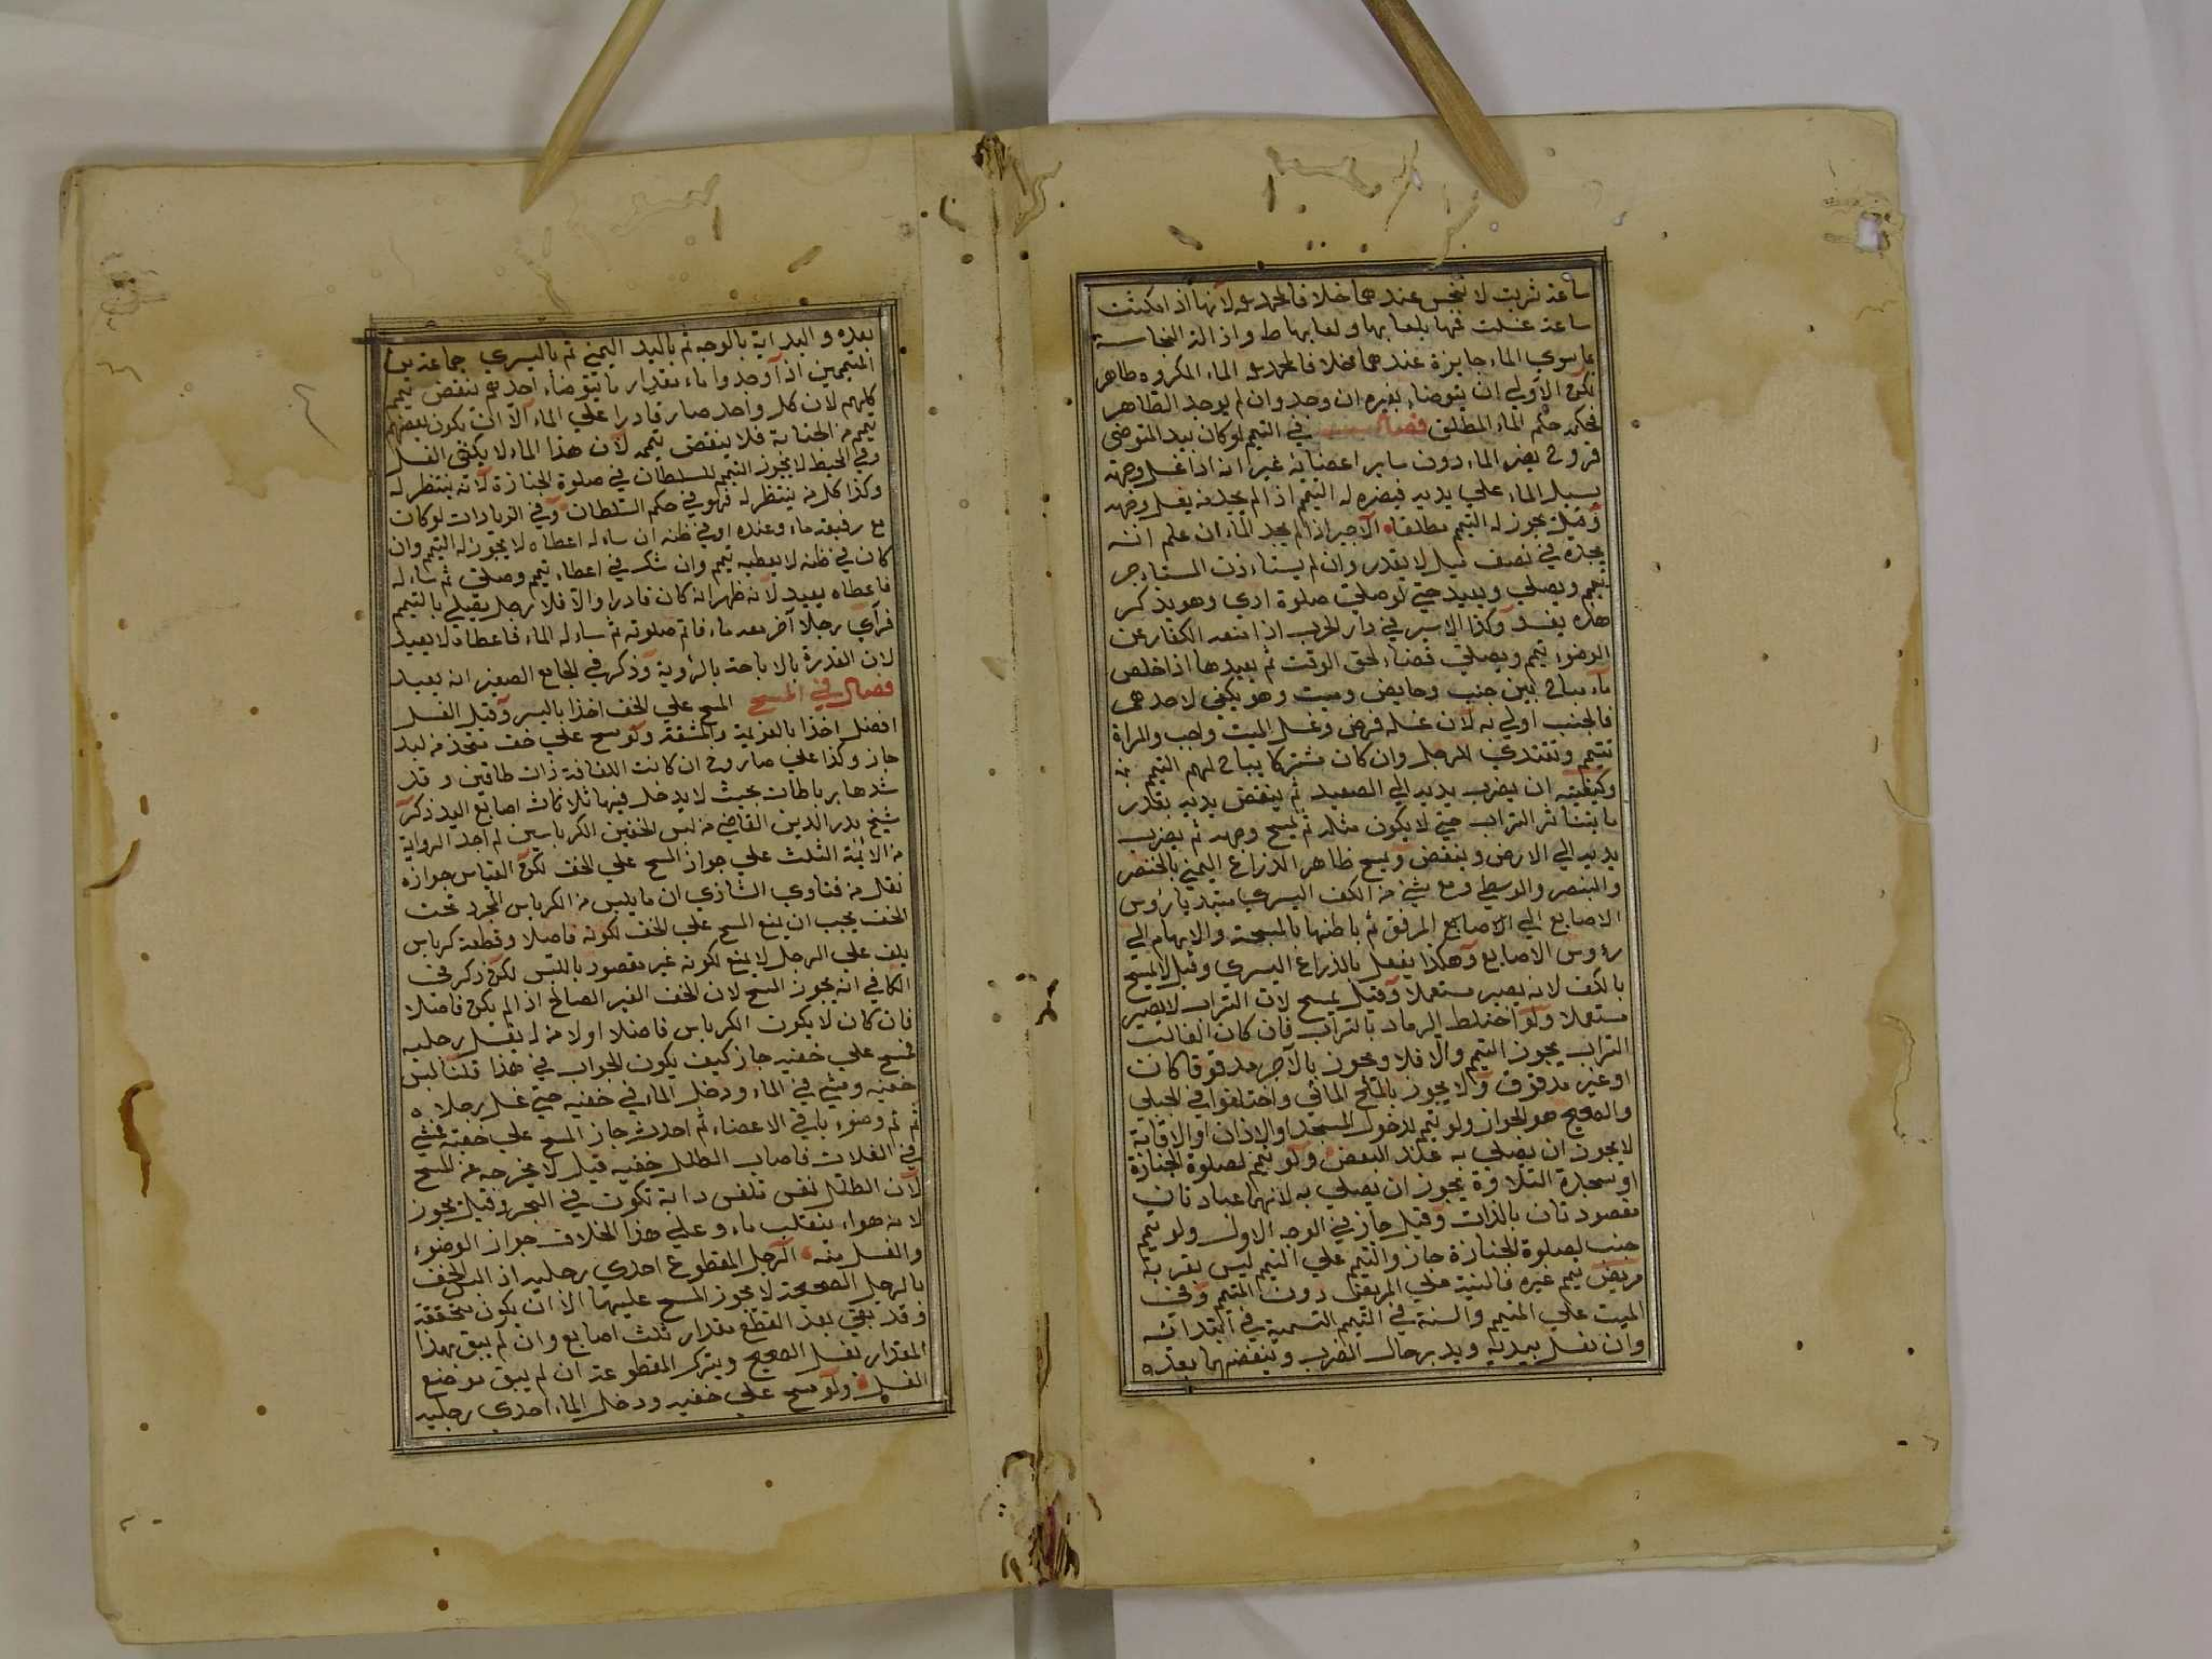 ساعة شربت لا تنجس عندهما خلافا لمحمد لانها اذا مكثت
ساعة غسلت فمها بلعابها ولعابها ط وازالة النجاسة
بما سوي الماء جايزة عندهما خلافا لمحمد الماء المكروه طاهر
لكن الاولي ان يتوضاء بغيره ان وجد وان لم يوجد الطاهر
فحكمه حكم الماء المطلق فصل في التيمم لو كان بيد المتوضي
قروح يضره الماء دون ساير اعضائه غير انه اذا غسل وجهه
يسيل الماء علي يديه فيضره له التيمم اذا لم يجد من يغسل وجهه
وقيل يجوز له التيمم مطلقا الاجير اذا لم يجد الماء ان علم انه
يجده في نصف ميل لا يقدر وان لم يستاءذن المستاءجر
تيمم ويصلي ويعيد حتي لو صلي صلوة اخري وهو يذكر
هذه يفسد وكذا الاسير في دار الحرب اذا منعه الكفار عن
الوضوء تيمم ويصلي قضاء لحق الوقت ثم يعيدها اذا خلص
ماء مباح بين جنب وحايض وميت وهو يكفي لاحدهم
فالجنب اولي به لان غسله فرض وغسل الميت واجب والمراة
تتيمم وتقتدي الرجل وان كان مشتركا يباح لهم التيمم
وكيفيته ان يضرب يديه الي الصعيد ثم ينفض يديه بقدر
ما يتناثر التراب حتي لا يكون مثله ثم يمسح وجهه ثم يضرب
يديه الي الارض وينفض ويمسح ظاهر الذراع اليمني بالخنصر
والبنصر والوسطي ومع شيء من الكف اليسري مبتديا رؤس
الاصابع الي الاصابع المرفق ثم باطنها بالمسبحة والابهام الي
رؤوس الاصابع وهكذا يفعل بالذراع اليسري وقيل لا يمسح
بالكف لانه يصير مستعملا وقيل يمسح لان التراب لا يصير
مستعملا ولو اختلط الرماد بالتراب فان كان الغالب
التراب يجوز التيمم والا فلا ويجوز بالآجر مدقوقا كانت
او غير مدقوق ولا يجوز بالملح المائي واختلفوا في الجبلي
والصحيح هو الجواز ولو تيمم لدخول المسجد او الاذان او الاقامة
لا يجوز ان يصلي به عند البعض ولو تيمم لصلوة الجنازة
او سجدة التلاوة يجوز ان يصلي به لانهما عبادتان
مقصودتان بالذات وقيل جاز في الوجه الاول ولو تيمم
جنب لصلوة الجنازة جاز والتيمم علي التيمم ليس بقربة
مريض تيمم غيره فالنية علي المريض دون المتيمم وفي
الميت علي المتيمم والسنة في التيمم التسمية في ابتدائه
وان نفل بيديه ويدبر حال الضرب وينفضهما بعده
بعده والبداية بالوجه ثم باليد اليمني ثم باليسري جماعة من
المتيممين اذا وجدوا ماء مقدار ما يتوضاء احدهم ينقض تيمم
كلهم لان كل واحد صار قادرا علي الماء الا ان يكون بعضهم
تيمم من الجنابة فلا ينقض تيممه لان هذا الماء لا يكفي الغسل
وفي المحيط لا يجوز التيمم للسلطان في صلوة الجنازة لانه ينتظر له
وكذا كل من ينتظر له فهو في حكم السلطان وفي الزيادات لو كان
مع رفيقه ماء وعنده او في ظنه ان ساءله اعطاه لا يجوز له التيمم وان
كان في ظنه لا يعطيه تيمم وان شك في اعطاء تيمم وصلي ثم ساءله
فاعطاه يعيد لانه ظهر انه كان قادرا والا فلا رجل يصلي بالتيمم
فرأي رجلا آخر معه ماء فاتم صلوته ثم ساءله الماء فاعطاه لا يعيد
لان القدرة بالاباحة بالرؤية وذكر في الجامع الصغير انه يعيد
فصل في المسح المسح علي الخف اخذا باليسر وقيل الغسل
افضل اخذا بالعزيمة والمشقة ولو مسح علي خف متخذ من لبد
جاز وكذا علي صاروخ ان كانت اللفافة ذات طاقين وقد
شدها برباطات بحيث لا يدخل فيها ثلاث اصابع اليد ذكر
شيخ بدر الدين القاضي من لبس الخفين الكرباسين لم اجد الرواية
من الائمة الثلث علي جواز المسح علي الخف لكن القياس جوازه
نقل من فتاوي الشاذي ان ما يلبس من الكرباس المجرد تحت
الخف يجب ان يمنع المسح علي الخف لكونه فاصلا وقطعة كرباس
يلف علي الرجل لا يمنع لكونه غير مقصود باللبس لكن ذكر في
الكافي انه يجوز المسح لان الخف الغير الصالح اذا لم يكن فاصلا
فان كان لا يكون الكرباس فاصلا اولا من لم يغسل رجليه
فمسح علي خفيه جاز كيف يكون الجواب في هذا قلنا لبس
خفيه ومشي في الماء ودخل الماء في خفيه حتي غسل رجلاه
ثم تم وضوء باقي الاعضاء ثم احدث جاز المسح علي خفيه يمشي
في الفلات فاصاب الطل خفيه قيل لا يخرجه عن المسح
لان الطل نفس تلفس دابة تكون في البحر وقيل يجوز
لانه هواء ينقلب ماء وعلي هذا الخلاف جواز الوضوء
والغسل منه الرجل المقطوع احدي رجليه اذا لبس الخف
بالرجل الصحيحة لا يجوز المسح عليهما الا ان يكون متخففة
وقد بقي بعد القطع مقدار ثلث اصابع وان لم يبق بهذا
المقدار يغسل الصحيح ويترك المقطوعة ان لم يبق موضع
الغسل ولو مسح علي خفيه ودخل الماء احدي رجليه